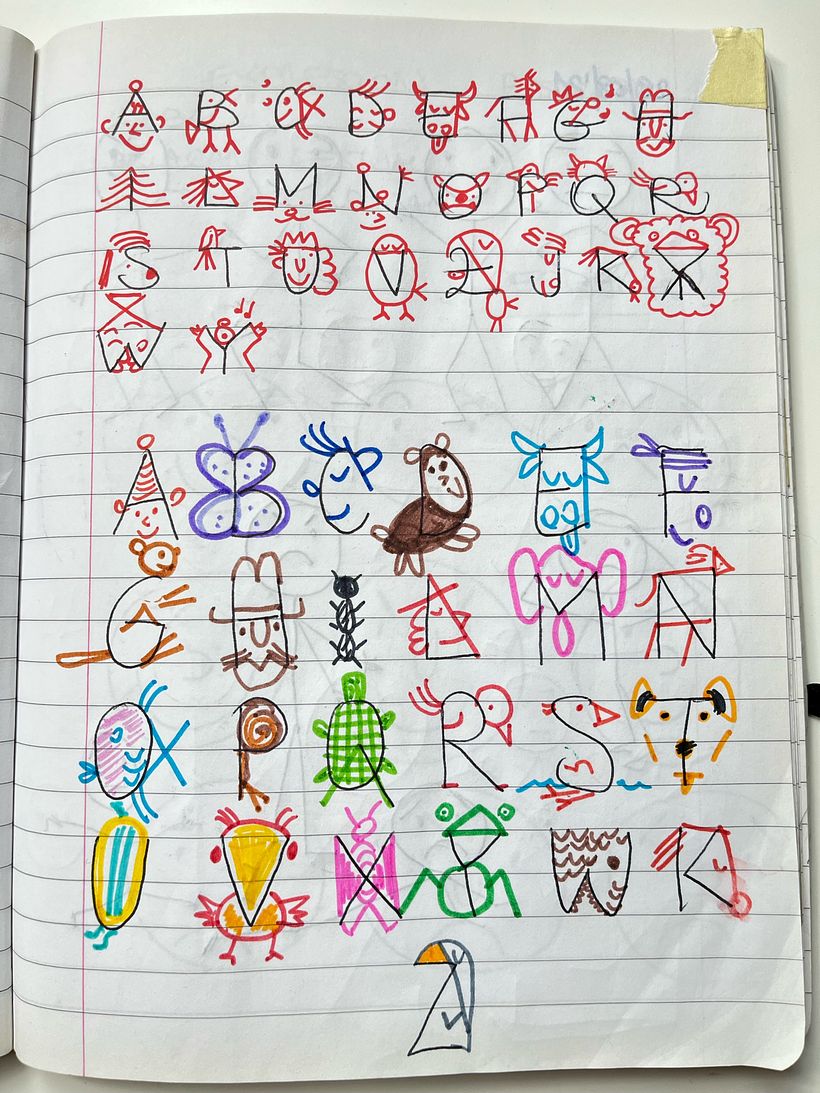 A B C D E F G H
I L M N O P Q R
S T U V Z J K X
W Y
A B C D E F
G H I L M N
O P Q R S T
U V X Y W K
Z